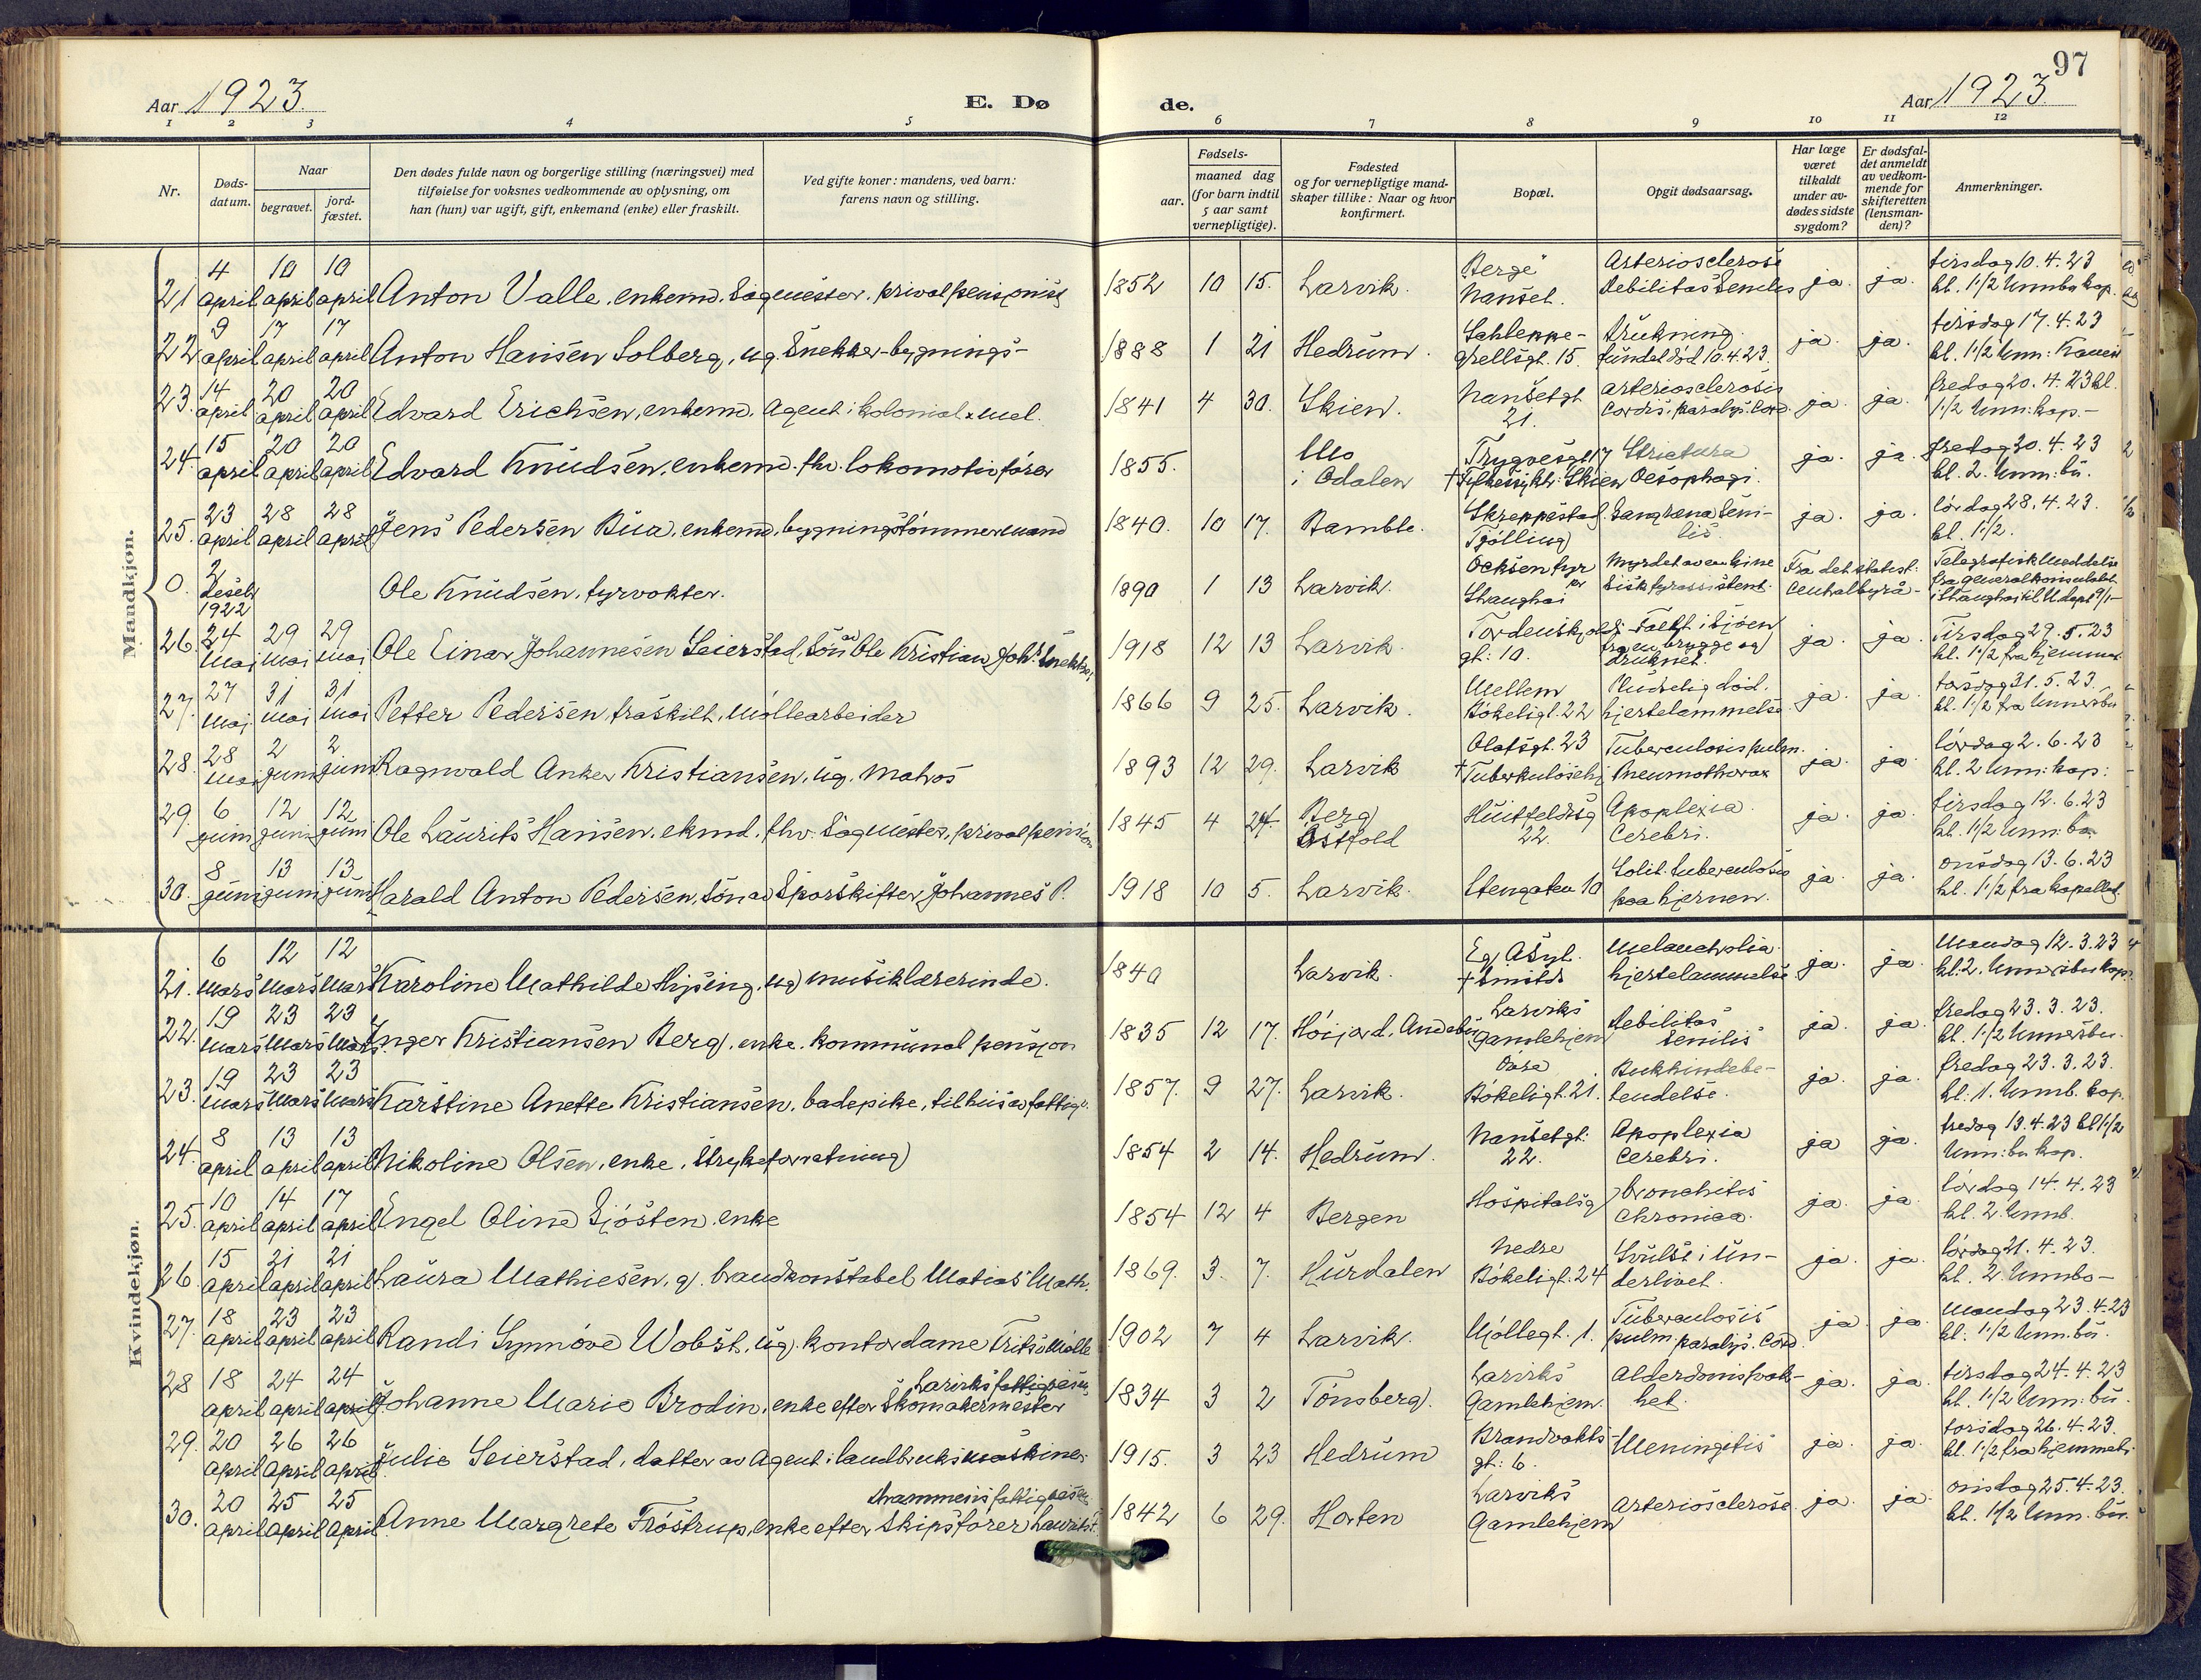 97
Aar 1923
E. Dø de.
Aar 1923
1 2 3 4 5 6 7 8 9 10 11 12
Nr.
Døds-
datum.
Naar
begravet.
jord-
fæstet.
Den dødes fulde navn og borgerlige stilling (næringsvei) med
tilføielse for voksnes vedkommende av oplysning, om
han (hun) var ugift, gift, enkemand (enke) eller fraskilt.
Ved gifte koner: mandens, ved barn:
farens navn og stilling.
Fødsels-
aar.
maaned dag
(for barn indtil
5 aar samt
vernepligtige).
Fødested
og for vernepligtige mand-
skaper tillike: Naar og hvor
konfirmert.
Bopæl.
Opgit dødsaarsag.
Har læge
været
tilkaldt
under av-
dødes sidste
sygdom?
Er dødsfal-
det anmeldt
av vedkom-
mende for
skifteretten
(lensman-
den)?
Anmerkninger.
Mandkjøn.
21 4 april 10 april 10 april Anton Valle, enkemd. Sagmester, privatpensjonist 1852 10 15. Larvik. Berge Nanset. Arteriosclerose debilitas Senilis ja. ja. tirsdag 10.4.23 kl. 1 1/2 Unnbu kap.
22 9 april 17 april 17 april Anton Hansen Solberg, ug. Snekker-bygnings- 1888 1 21 Hedrum. Schleppe-grellsgt. 15 drukning. fundet død 10.4.23. ja. ja. tirsdag 17.4.23 kl. 1 1/2 Unn:
23. 14 april 20 april 20 april Edvard Erichsen, enkemd. Agent i kolonial x mel. 1841 4 30. Skien. Nansetgt 21. arteriosclerosis cordis, paralys. cord. ja. ja. fredag 20.4.23 kl. 1 1/2 Unn: kap.-
24. 15 april 20 april 20 april Edvard Knudsen, enkemd. fhv. lokomotivfører 1855. Mo i Odalen Trygvesgt 17 + Skien Strictura Oesophagi. ja. ja. fredag 20.4.23 kl. 2. Unn: bu.
25. 23 april 28 april 28 april Jens Pedersen Bua, enkemd. bygningstømmermand 1840. 10 17. Bamble. Skreppestad Tjølling Gangræna Seni-lis. ja. ja. lørdag 28.4.23. kl. 1 1/2.
0. 2 Desebr 1922 Ole Knudsen, fyrvokter. 1890 1 13 Larvik. Ocksen fyr pr Shanghai Myrdet av en kine sisk fyrassistent. Fra det statist. centralbyrå- Telegrafisk Meddelelse fra generalkonsulatet i Shanghai til U.dept 9/1-
26. 24 mai 29 mai 29 mai Ole Einar Johannesen Seierstad, Søn av Ole Kristian Joh. Snekker, 1918 12 13 Larvik. Tordenskjolds gt: 10. Faldt i sjøen fra en brygge og druknet. ja. ja. Tirsdag 29.5.23 kl. 1 1/2 fra hjemmet.
27. 27 mai 31 mai 31 mai Petter Pedersen, fraskilt, Møllearbeider 1866 9 25. Larvik. Mellem Bøkeligt. 22 Pludselig død. hjertelammelse ja. ja. torsdag 31.5.23. kl. 1 1/2 fra Unnersbu
28. 28 mai 2 juni 2 juni Ragnvald Anker Kristiansen, ug. Matros 1893 12 29. Larvik Olafsgt. 23 + Tuberkulosehj Tuberculosis pulm. Pneumothorax ja. ja. lørdag 2.6.23 kl. 2 Unn: kap:
29. 6 juni 12 juni 12 juni Ole Laurits Hansen, ekmd. fhv. Sagmester, privatpension 1845 4 24. Berg Østfold Huitfeldtsg 22. Apoplexia Cerebri. ja. ja. tirsdag 12.6.23 kl. 1 1/2 Unn: bu
30. 8 juni 13 juni 13 juni Harald Anton Pedersen, søn av Sporskifter Johannes P. 1918 10 5. Larvik. Stengaten 10 Solit. tuberculose paa hjernen. ja. ja. onsdag 13.6.23 kl. 1 1/2 fra kapellet.
Kvindekjøn.
21. 6 Mars 12 Mars 12 Mars Karoline Mathilde Hysing, ug musiklærerinde. 1840 Larvik. Eg Asyl. + Larvik Melancholia. hjertelammelse ja. ja. Mandag 12.3.23 kl. 2. Unnersbu kap.
22. 19 Mars 23 Mars 23 Mars Inger Kristiansen Berg, enke. kommunal pensjon 1835 12 17. Høijord, Andebu Larviks Gamlehjem debilitas senilis ja. ja. fredag 23.3.23. kl. 1 1/2 Unnersbu.
23. 19 Mars 23 Mars 23 Mars Karstine Anette Kristiansen, badepike, tilhus av fattigv. 1857. 9 27. Larvik. Øvre Bøkeligt. 21. Bukhindebe-tendelse. ja. ja. fredag 23.3.23. kl. 1. Unnb. kap.
24. 8 april 13 april 13 april Nikoline Olsen, enke, Strykeforretning 1854 2 14. Hedrum. Nansetgt: 22. Apoplexia Cerebri. ja ja. fredag 13.4.23 kl 1 1/2 Unn: bu kap.
25. 10 april 14 april 17 april Engel Oline Sjøsten, enke 1854 12 4 Bergen Hospitalsg bronchitis Chronica. ja. ja. lørdag 14.4.23 kl. 2. Unnb.
26. 15 april 21 april 21 april Laura Mathiesen, g. brandkonstabel Matias Math. 1869. 3. 7. Hurdalen Nedre Bøkeligt. 24 Svulst i Un-derlivet. ja. ja. lørdag 21.4.23. kl. 2. Unnbu-
27. 18 april 23 april 23 april Randi Synnøve Wobst, ug. kontordame Fritsø Mølle 1902 7 4 Larvik. Møllegt. 1. Tuberculosis pulm. paralys. cord ja. ja. Mandag 23.4.23 kl. 1 1/2 Unn. bu.
28 18 april 24 april 24 april Johanne Marie Brodin, enke efter Skomakermester Larviks fattigvesen 1834 3 2 Tønsberg. Larviks Gamlehjem. Alderdomssvak-het. ja. ja. tirsdag 24.4.23 kl. 1 1/2 Unn: bu.
29. 20 april 26 april 26 april Julie Seierstad, datter av Agent i landbruksmaskiner 1915. 3 23 Hedrum Brandvakts-gt: 6. Meningitis ja. ja. torsdag 26.4.23. kl. 1 1/2 fra hjemmet.
30. 20 april 25 april 25 april Anne Margrete Frøstrup, enke efter Skipsfører Laurits F. Drammens fattigvesen 1842 6 29. Horten Larviks Gamlehjem Arteriosclerose. ja. ja. onsdag 25.4.23. kl. 1 1/2 Unn. bu.